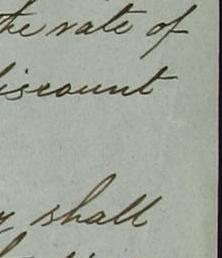 the rate of
discount
shall